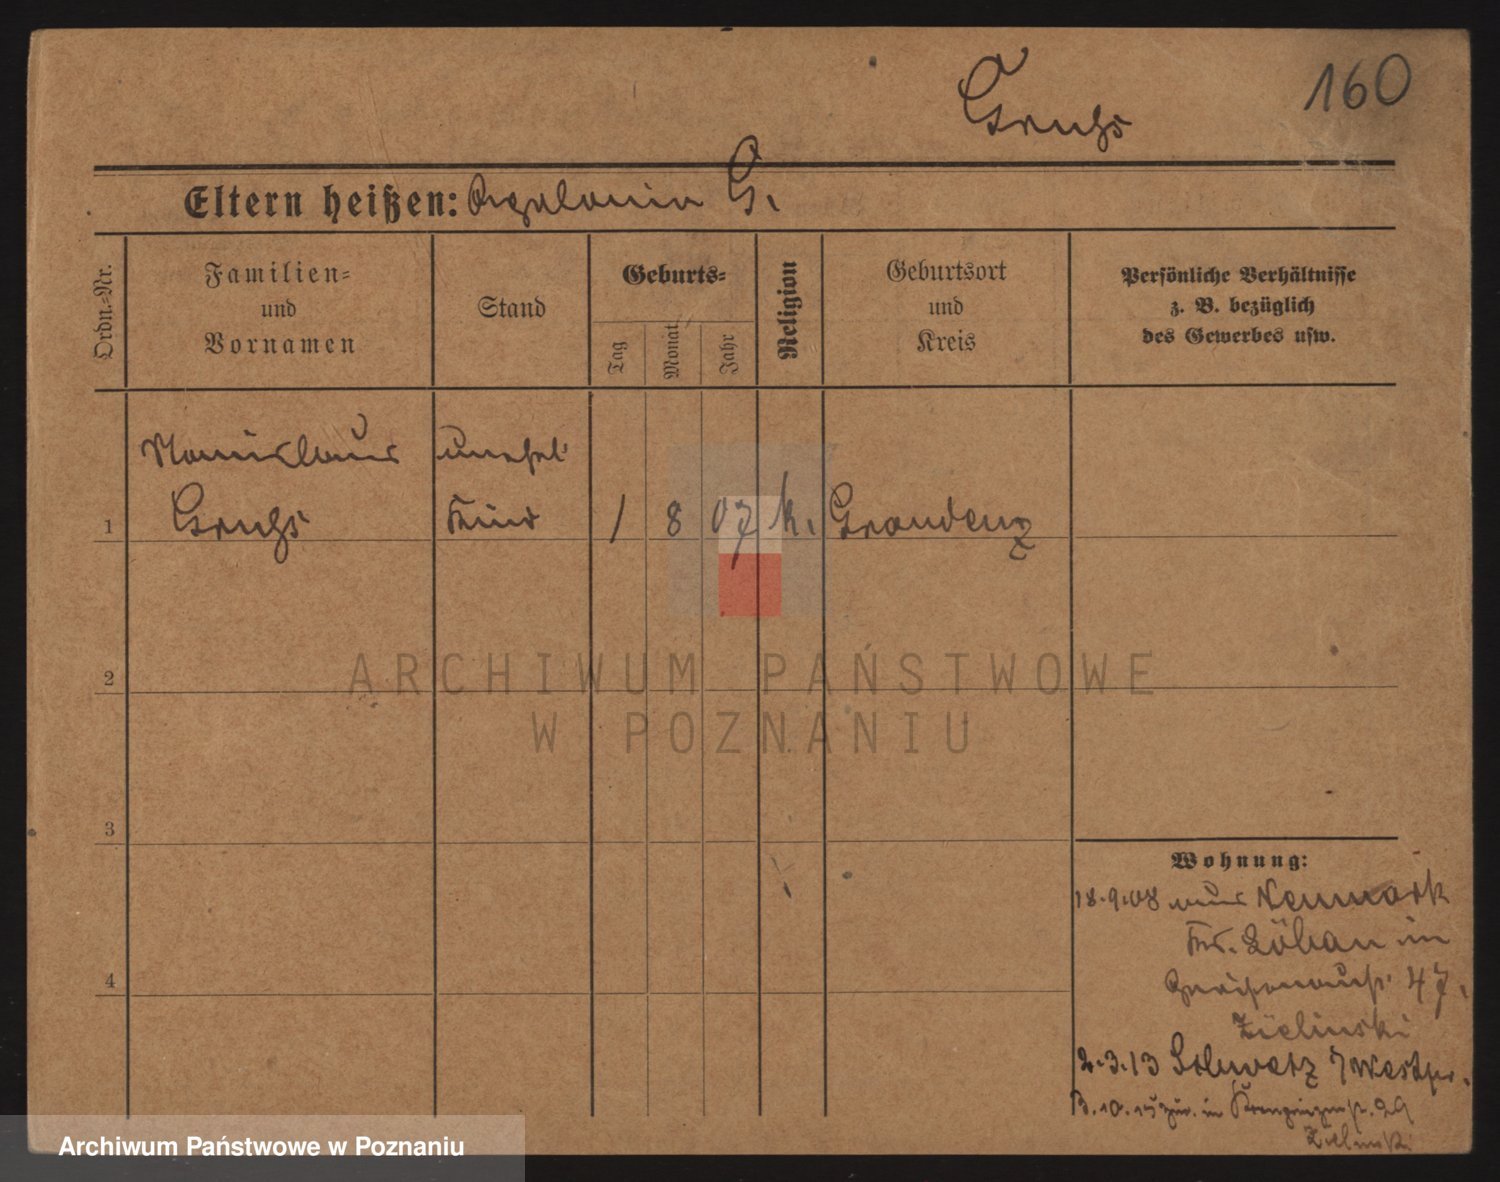 160
Gruhs
Eltern heißen: Apolonia G.
Ordn.-Nr.
Familien-
und
Vornamen
Stand
Geburts-
Tag
Monat
Jahr
Religion
Geburtsort
und
Kreis
Persönliche Verhältnisse
z. B. bezüglich
des Gewerbes usw.
Stanislaus unehel.
1 Gruhs Kind 1 8 07 k. Graudenz
2
3
4
Wohnung:
18.9.08 aus Neumark
Kr. Löbau in
47.
Zielinski
2.3.13 Schwetz /Westpr.
13.10.15 zur. in 29
Zielinski
ARCHIWUM PAŃSTWOWE
W POZNANIU
Archiwum Państwowe w Poznaniu